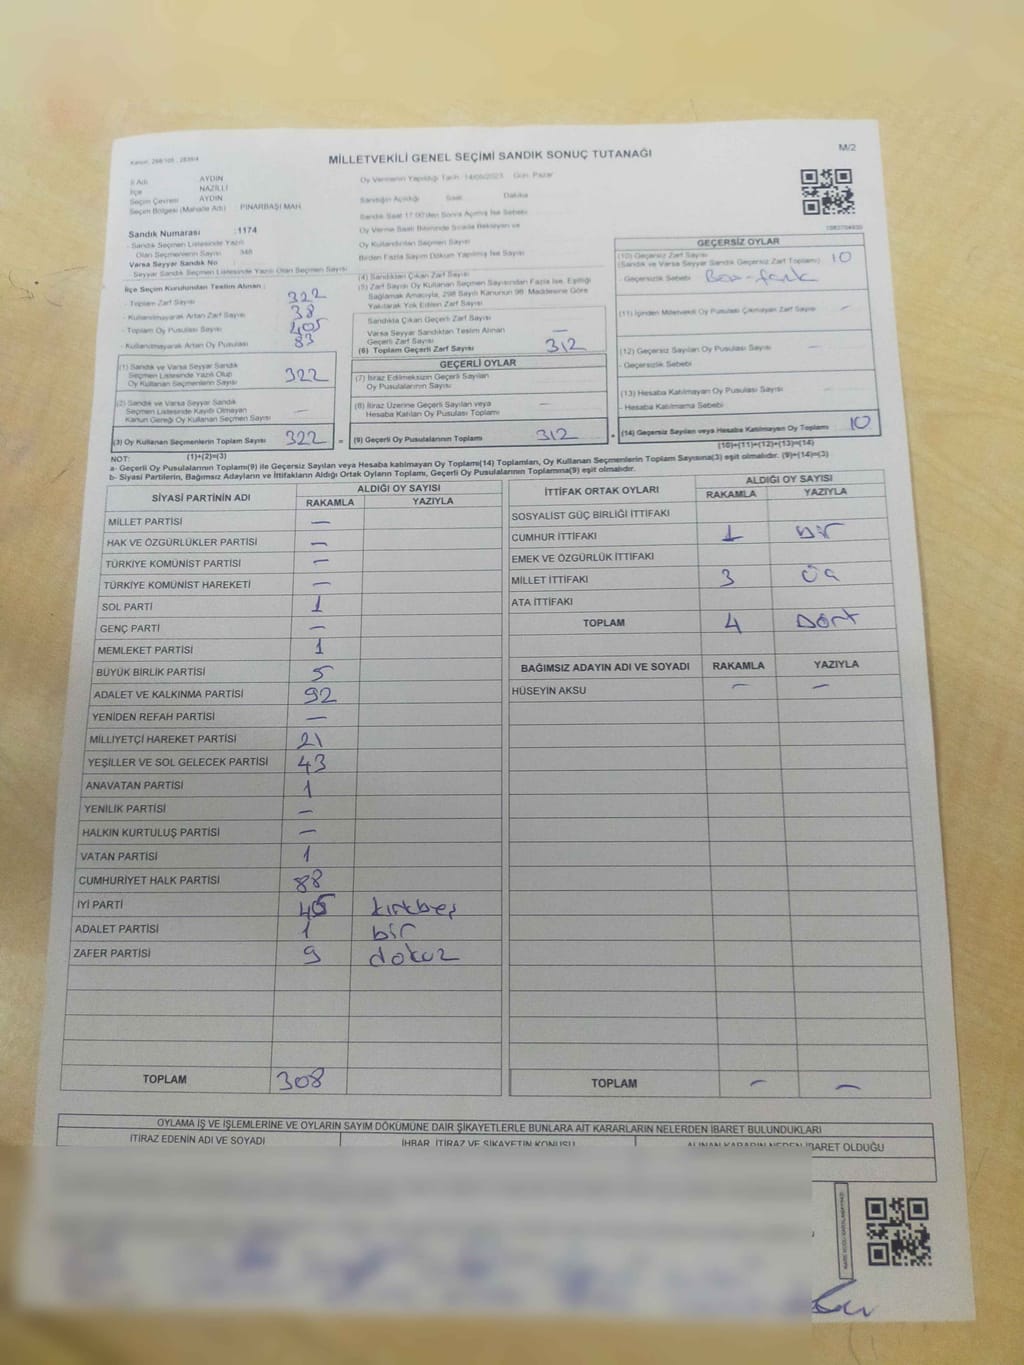 Kanun: 298/105 ; 2839/4
MİLLETVEKİLİ GENEL SEÇİMİ SANDIK SONUÇ TUTANAĞI
M/2
İl Adı AYDIN
İlçe NAZİLLİ
Seçim Çevresi AYDIN
Seçim Bölgesi (Mahalle Adı) PINARBAŞI MAH.
Sandık Numarası : 1174
- Sandık Seçmen Listesinde Yazılı
Olan Seçmenlerin Sayısı 348
Varsa Seyyar Sandık No
- Seyyar Sandık Seçmen Listesinde Yazılı Olan Seçmen Sayısı
İlçe Seçim Kurulundan Teslim Alınan :
- Toplam Zarf Sayısı 322
- Kullanılmayarak Artan Zarf Sayısı 38
- Toplam Oy Pusulası Sayısı 405
- Kullanılmayarak Artan Oy Pusulası 83
(1) Sandık ve Varsa Seyyar Sandık
Seçmen Listesinde Yazılı Olup
Oy Kullanan Seçmenlerin Sayısı 322
(2) Sandık ve Varsa Seyyar Sandık
Seçmen Listesinde Kayıtlı Olmayan
Kanun Gereği Oy Kullanan Seçmen Sayısı —
(3) Oy Kullanan Seçmenlerin Toplam Sayısı 322 =
(1)+(2)=(3)
Oy Vermenin Yapıldığı Tarih: 14/05/2023 Gün: Pazar
Sandığın Açıldığı Saat: Dakika
Sandık Saat 17:00'den Sonra Açılmış İse Sebebi
Oy Verme Saati Bitiminde Sırada Bekleyen ve
Oy Kullandırılan Seçmen Sayısı
Birden Fazla Sayım Döküm Yapılmış İse Sayısı
(4) Sandıktan Çıkan Zarf Sayısı
(5) Zarf Sayısı Oy Kullanan Seçmen Sayısından Fazla İse, Eşitliği
Sağlamak Amacıyla, 298 Sayılı Kanunun 98. Maddesine Göre
Yakılarak Yok Edilen Zarf Sayısı
Sandıkta Çıkan Geçerli Zarf Sayısı
Varsa Seyyar Sandıktan Teslim Alınan
Geçerli Zarf Sayısı —
(6) Toplam Geçerli Zarf Sayısı 312
GEÇERLİ OYLAR
(7) İtiraz Edilmeksizin Geçerli Sayılan
Oy Pusulalarının Sayısı
(8) İtiraz Üzerine Geçerli Sayılan veya
Hesaba Katılan Oy Pusulası Toplamı —
(9) Geçerli Oy Pusulalarının Toplamı 312 +
GEÇERSİZ OYLAR
(10) Geçersiz Zarf Sayısı
(Sandık ve Varsa Seyyar Sandık Geçersiz Zarf Toplamı) 10
- Geçersizlik Sebebi
(11) İçinden Milletvekili Oy Pusulası Çıkmayan Zarf Sayısı —
(12) Geçersiz Sayılan Oy Pusulası Sayısı —
- Geçersizlik Sebebi
(13) Hesaba Katılmayan Oy Pusulası Sayısı —
- Hesaba Katılmama Sebebi
(14) Geçersiz Sayılan veya Hesaba Katılmayan Oy Toplamı 10
(10)+(11)+(12)+(13)=(14)
NOT:
a- Geçerli Oy Pusulalarının Toplamı(9) ile Geçersiz Sayılan veya Hesaba katılmayan Oy Toplamı(14) Toplamları, Oy Kullanan Seçmenlerin Toplam Sayısına(3) eşit olmalıdır. (9)+(14)=(3)
b- Siyasi Partilerin, Bağımsız Adayların ve İttifakların Aldığı Ortak Oyların Toplamı, Geçerli Oy Pusulalarının Toplamına(9) eşit olmalıdır.
SİYASİ PARTİNİN ADI ALDIĞI OY SAYISI
RAKAMLA YAZIYLA
MİLLET PARTİSİ —
HAK VE ÖZGÜRLÜKLER PARTİSİ —
TÜRKİYE KOMÜNİST PARTİSİ —
TÜRKİYE KOMÜNİST HAREKETİ —
SOL PARTİ 1
GENÇ PARTİ —
MEMLEKET PARTİSİ 1
BÜYÜK BİRLİK PARTİSİ 5
ADALET VE KALKINMA PARTİSİ 92
YENİDEN REFAH PARTİSİ —
MİLLİYETÇİ HAREKET PARTİSİ 21
YEŞİLLER VE SOL GELECEK PARTİSİ 43
ANAVATAN PARTİSİ 1
YENİLİK PARTİSİ —
HALKIN KURTULUŞ PARTİSİ —
VATAN PARTİSİ 1
CUMHURİYET HALK PARTİSİ 88
İYİ PARTİ 45 kırkbeş
ADALET PARTİSİ 1 bir
ZAFER PARTİSİ 9 dokuz
TOPLAM 308
İTTİFAK ORTAK OYLARI ALDIĞI OY SAYISI
RAKAMLA YAZIYLA
SOSYALİST GÜÇ BİRLİĞİ İTTİFAKI
CUMHUR İTTİFAKI 1 bir
EMEK VE ÖZGÜRLÜK İTTİFAKI
MİLLET İTTİFAKI 3 üç
ATA İTTİFAKI
TOPLAM 4 Dört
BAĞIMSIZ ADAYIN ADI VE SOYADI RAKAMLA YAZIYLA
HÜSEYİN AKSU — —
TOPLAM — —
OYLAMA İŞ VE İŞLEMLERİNE VE OYLARIN SAYIM DÖKÜMÜNE DAİR ŞİKAYETLERLE BUNLARA AİT KARARLARIN NELERDEN İBARET BULUNDUKLARI
İTİRAZ EDENİN ADI VE SOYADI İHBAR, İTİRAZ VE ŞİKAYETİN KONUSU ALINAN KARARIN NEDEN İBARET OLDUĞU